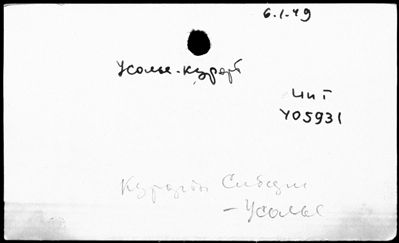 6.1.49
Усолье-курорт
ЧиТ
У05931
Курорты Сибири
- Усолье